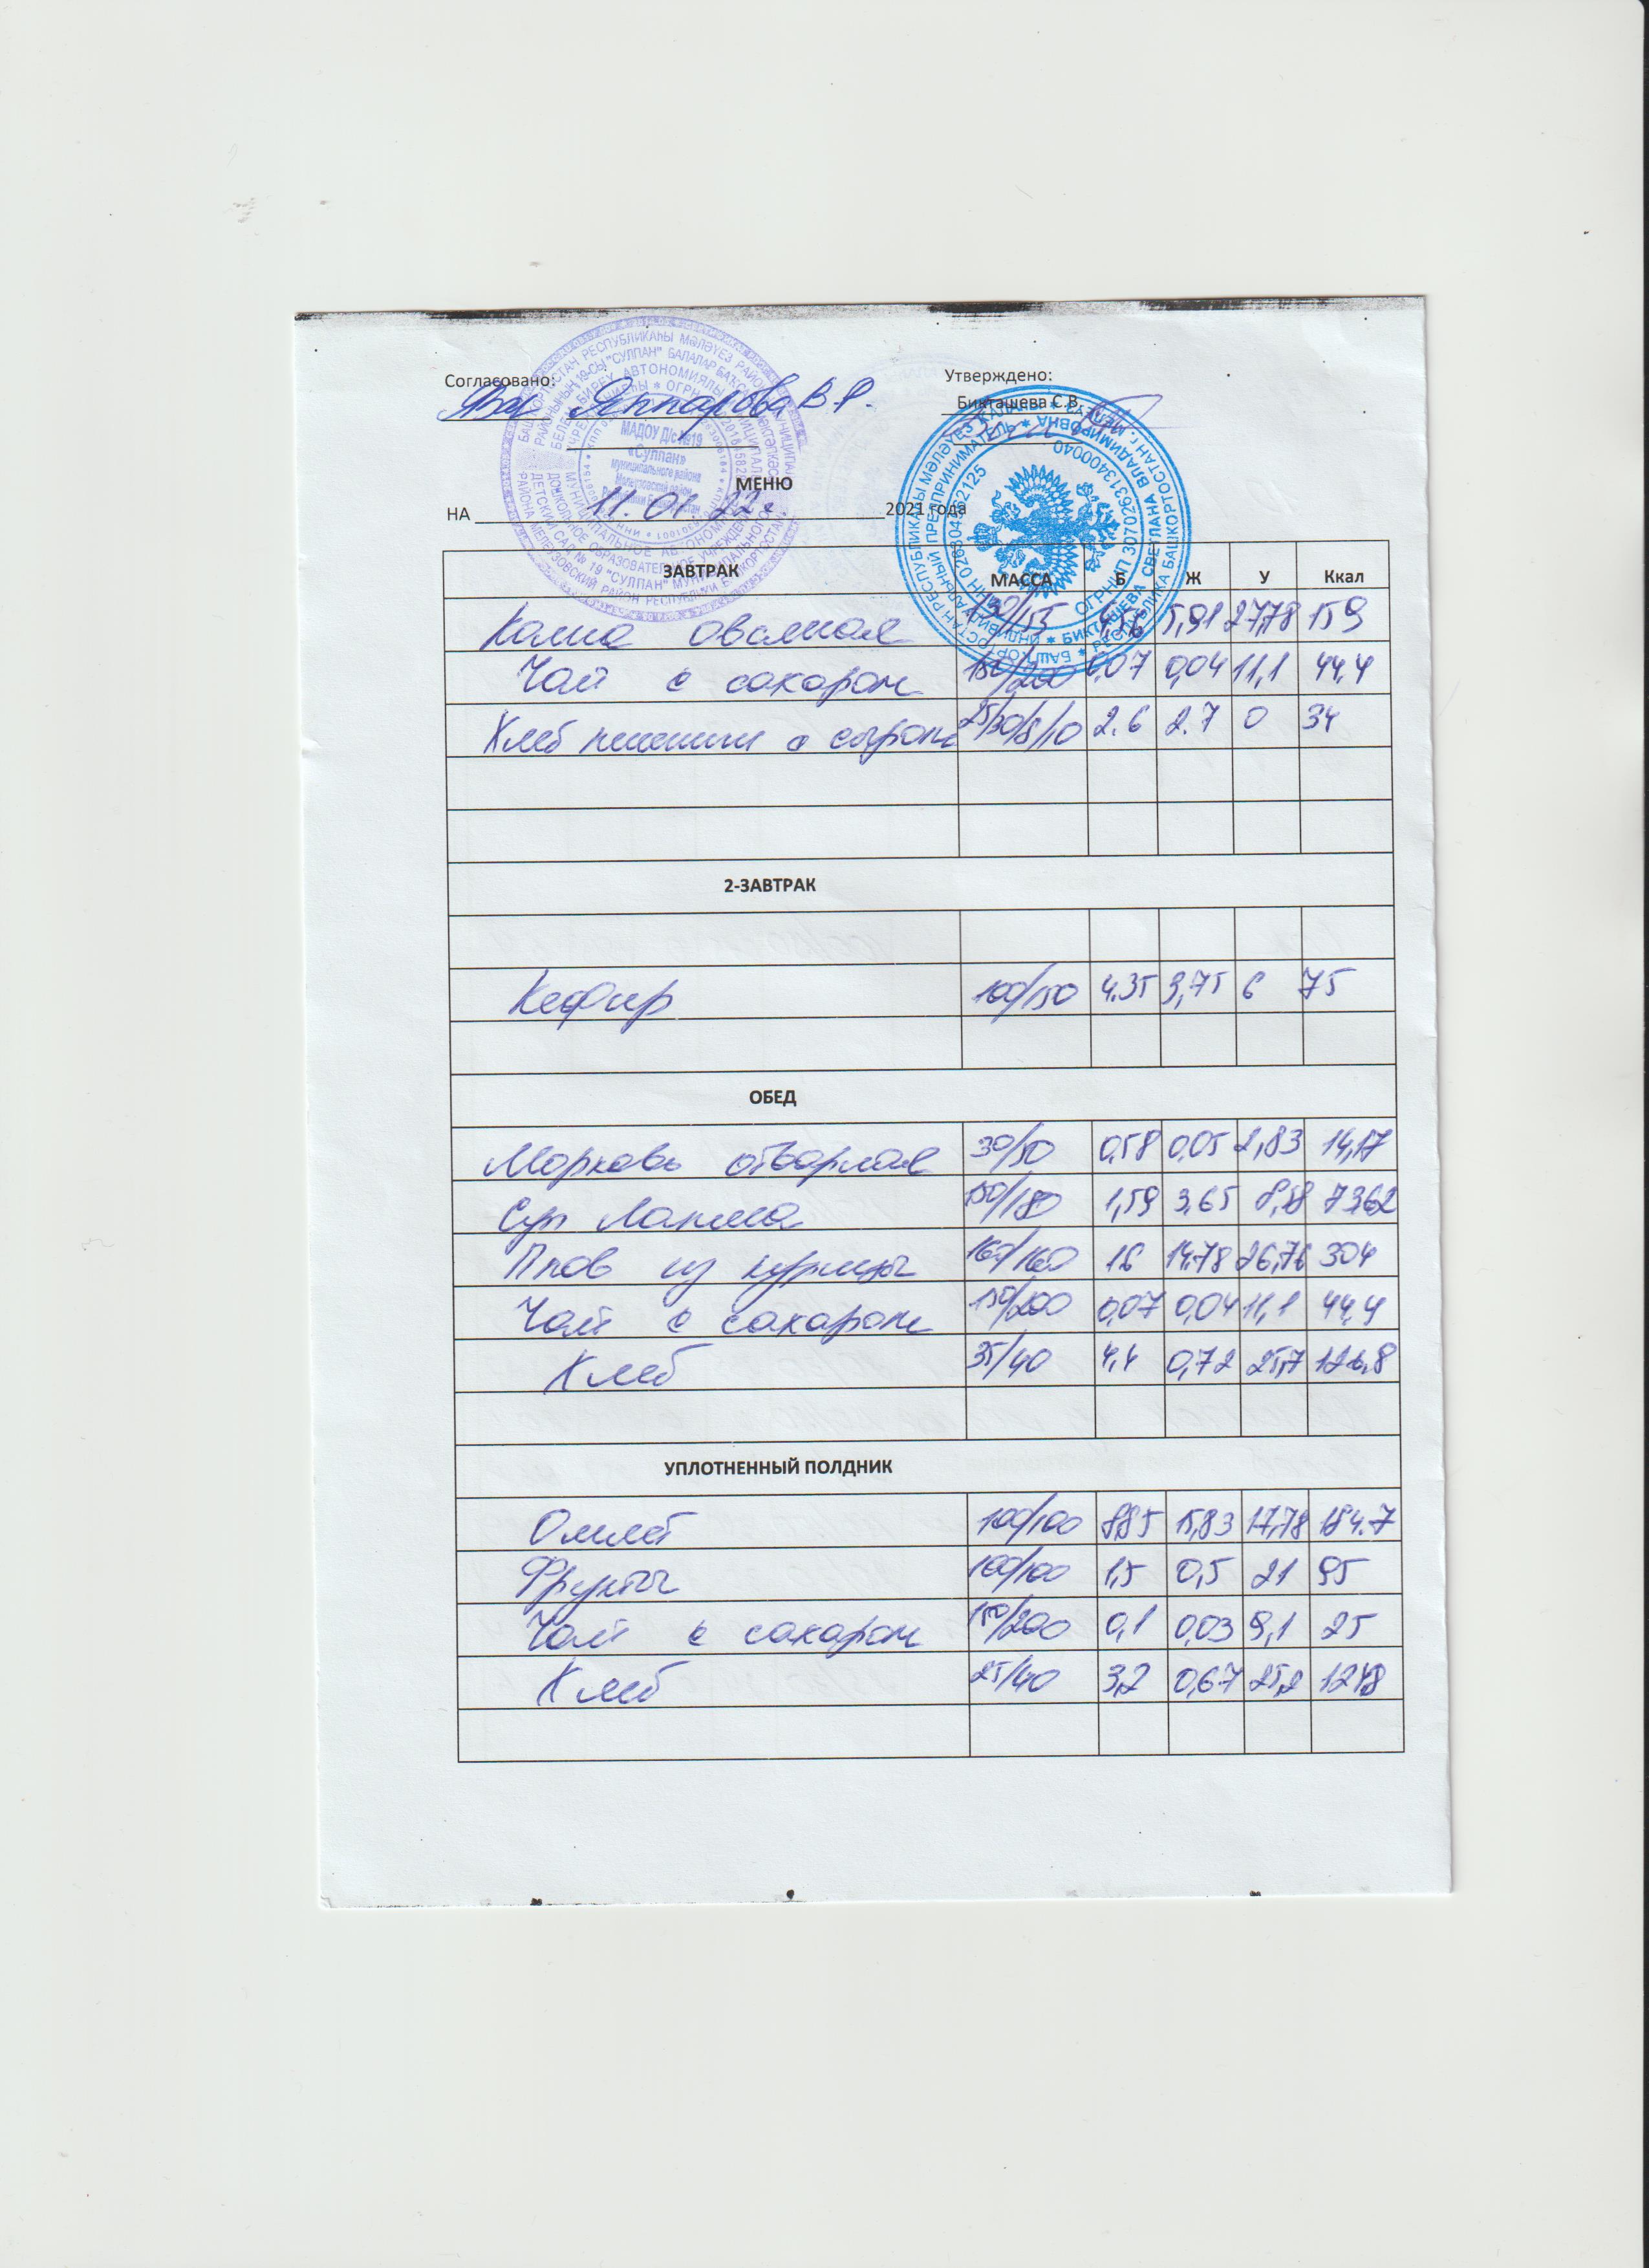 Согласовано: Утверждено:
Яппарова В.Р. Бикташева С.В.
МЕНЮ
НА 11.01.22г 2021 года
ЗАВТРАК МАССА Б Ж У Ккал
Каша овсяная 130/155 4,56 5,91 27,78 159
Чай с сахаром 150/200 0,07 0,04 11,1 44,4
Хлеб пшенич с сыром 25/30/8/10 2.6 2.7 0 34
2-ЗАВТРАК
Кефир 100/150 4.35 3,75 6 75
ОБЕД
Морковь отварная 30/50 0,58 0,05 2,83 14,17
Суп Лапша 150/180 1,59 3,65 8,58 7362
Плов из курицы 160/160 16 14.78 26,76 304
Чай с сахаром 150/200 0,07 0,04 11,1 44,4
Хлеб 35/40 4,4 0,72 25,7 126,8
УПЛОТНЕННЫЙ ПОЛДНИК
Омлет 100/100 8,85 15,83 17,78 184.7
Фрукты 100/100 1,5 0,5 21 95
Чай с сахаром 150/200 0,1 0,03 9,1 25
Хлеб 25/40 3,2 0,67 25,2 124,8
МАДОУ Д/с №19
«Сулпан»
муниципального района
Мелеузовский район
ДЕТСКИЙ САД № 19 "СУЛПАН" МУНИЦИПАЛЬНОГО
РАЙОНА МЕЛЕУЗОВСКИЙ РАЙОН РЕСПУБЛИКИ БАШКОРТОСТАН
БИКТАШЕВА СВЕТЛАНА ВЛАДИМИРОВНА
ОГРНИП 307026313400040
РЕСПУБЛИКА БАШКОРТОСТАН г. МЕЛЕУЗ